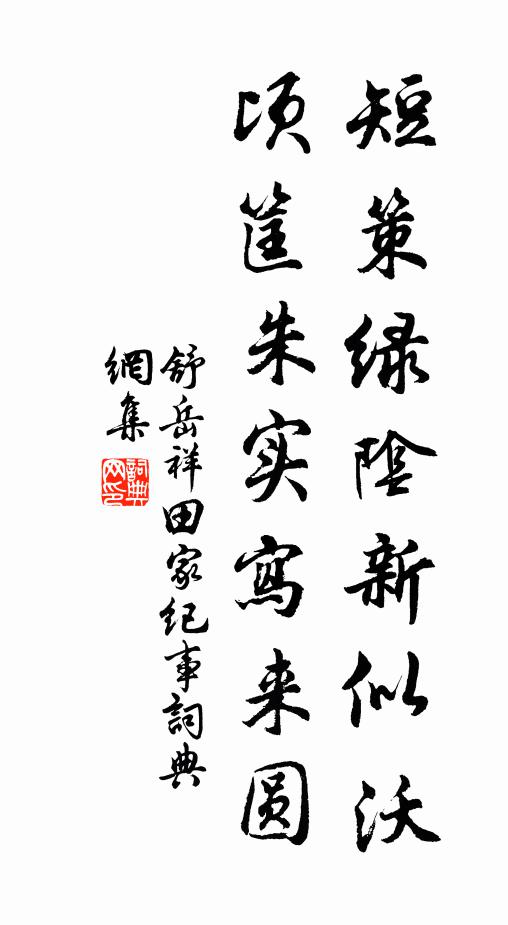 短策绿陰新似沃
顷筐朱实寫来圆
舒岳祥田家纪事詞典
網集
詞典网印